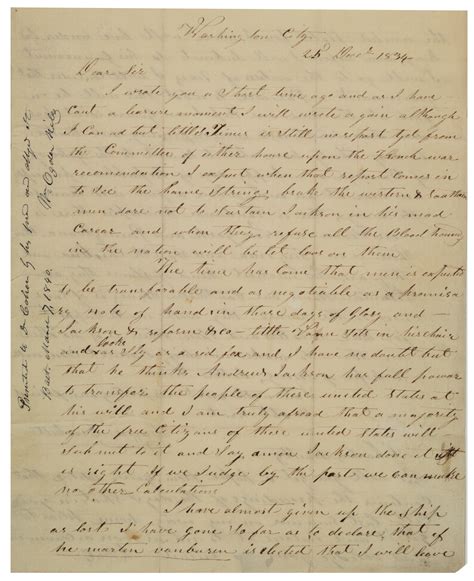 Washington City
25 Decr 1834
Dear Sir
I wrote you a Short time ago and as I have
Caut a leasure moment I will write a gain although
I Can ad but little Ther is Still no report yet from
the Committee of either house upon the French war
recomendation I expect when that report Comes in
to See the home Strings brake the western &
men dare not to Sustain Jackson in his mad
Carear and when they refuse all the Blood
in the nation will be let lose on them
The time has Come that men is expected
to be transferable and as negotiable as a promisa
ry note of hand in these days of Glory and
Jackson & reform & co — little Vann Sets in his chair
and looks as Sly as a red fox and I have no doubt but
that he thinks Andrew Jackson has full power
to transfer the people of these united States at
his will and I am truly afraid that a majority
of the free Citizens of these united States will
Submit to it and Say amin Jackson done it it
is right If we Judge by the past we can make
no other Calculations
I have almost given up the Ship
as lost I have gone So far as to declare that if
he martin vanburen is elected that I will leave
Presented to D Cohen by his friend and
Wm Ogden Niles
Balto March 7, 1840.